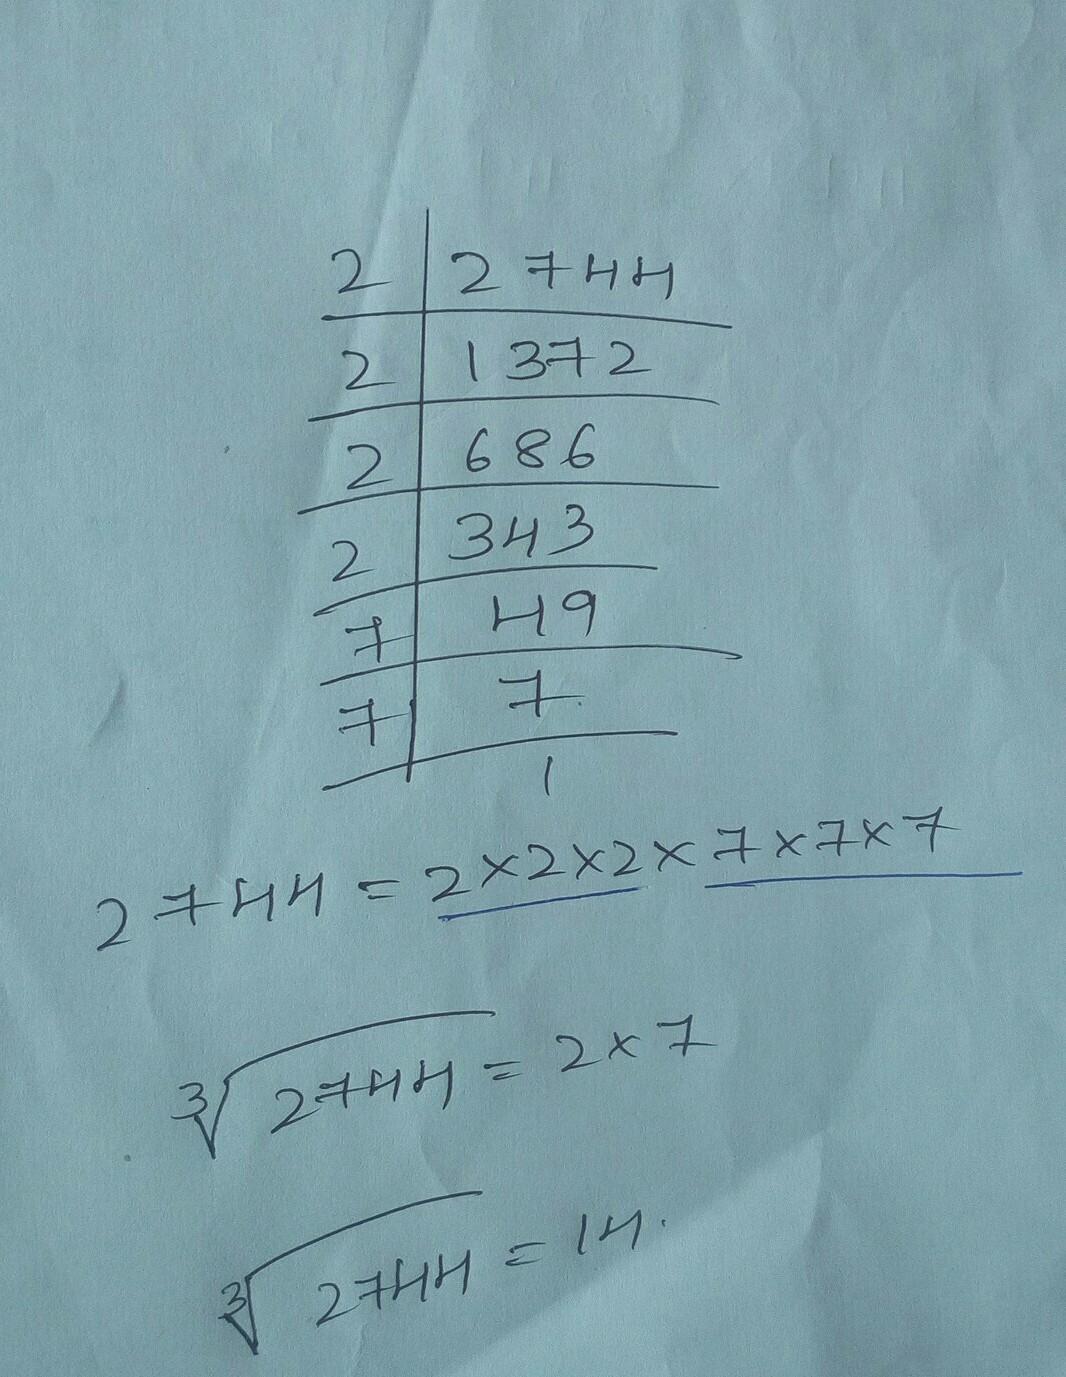 2 | 2744
2 | 1372
2 | 686
2 | 343
7 | 49
7 | 7
1
2744 = 2×2×2×7×7×7
∛2744 = 2×7
∛2744 = 14.